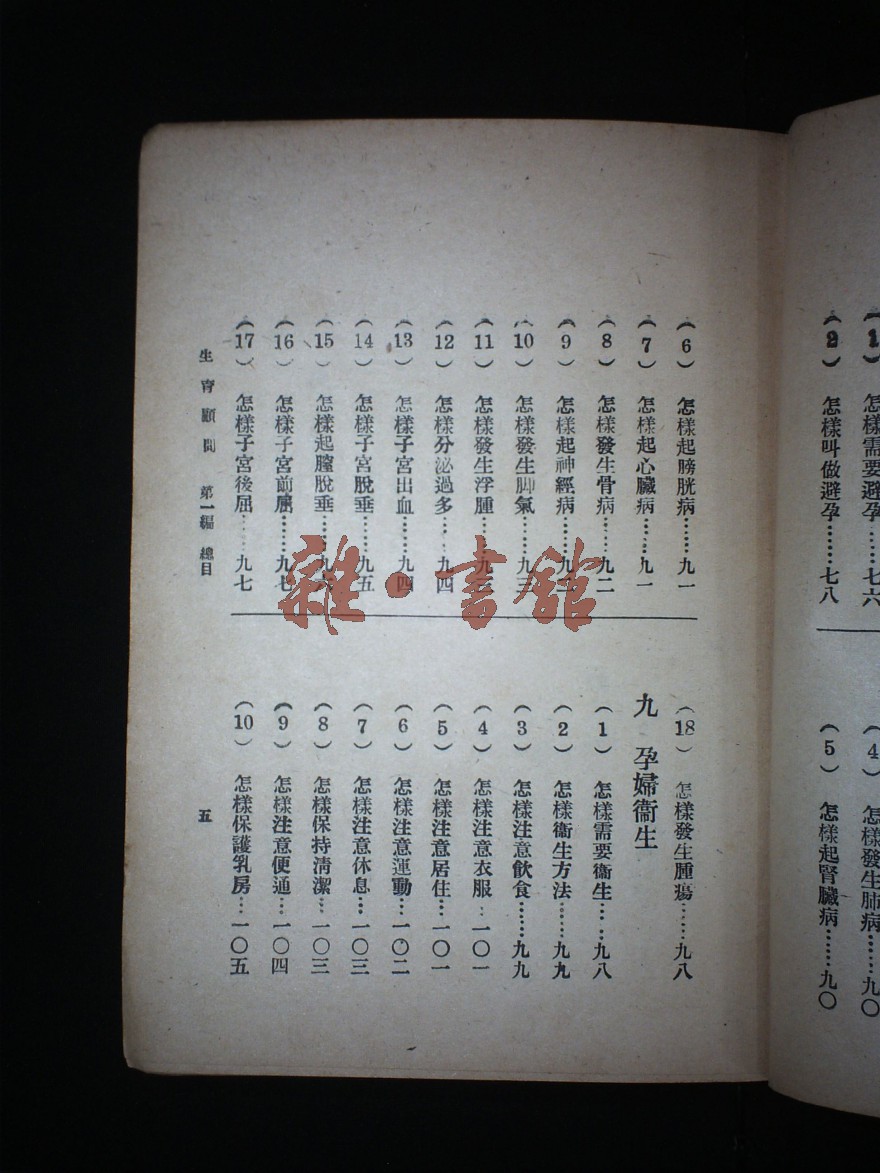 (1) 怎樣需要避孕……七六
(2) 怎樣叫做避孕……七八
(4) 怎樣發生肺病……九〇
(5) 怎樣起腎臟病……九〇
(6) 怎樣起膀胱病……九一
(7) 怎樣起心臟病……九一
(8) 怎樣發生骨病……九二
(9) 怎樣起神經病……九二
(10) 怎樣發生脚氣……九三
(11) 怎樣發生浮腫……九三
(12) 怎樣分泌過多……九四
(13) 怎樣子宮出血……九四
(14) 怎樣子宮脫垂……九五
(15) 怎樣起膣脫垂……九六
(16) 怎樣子宮前屈……九七
(17) 怎樣子宮後屈……九七
(18) 怎樣發生腫瘍……九八
九 孕婦衞生
(1) 怎樣需要衞生……九八
(2) 怎樣衞生方法……九九
(3) 怎樣注意飲食……九九
(4) 怎樣注意衣服…一〇一
(5) 怎樣注意居住…一〇一
(6) 怎樣注意運動…一〇二
(7) 怎樣注意休息…一〇三
(8) 怎樣保持清潔…一〇三
(9) 怎樣注意便通…一〇四
(10) 怎樣保護乳房…一〇五
生育顧問 第一編 總目
五
雜·書館